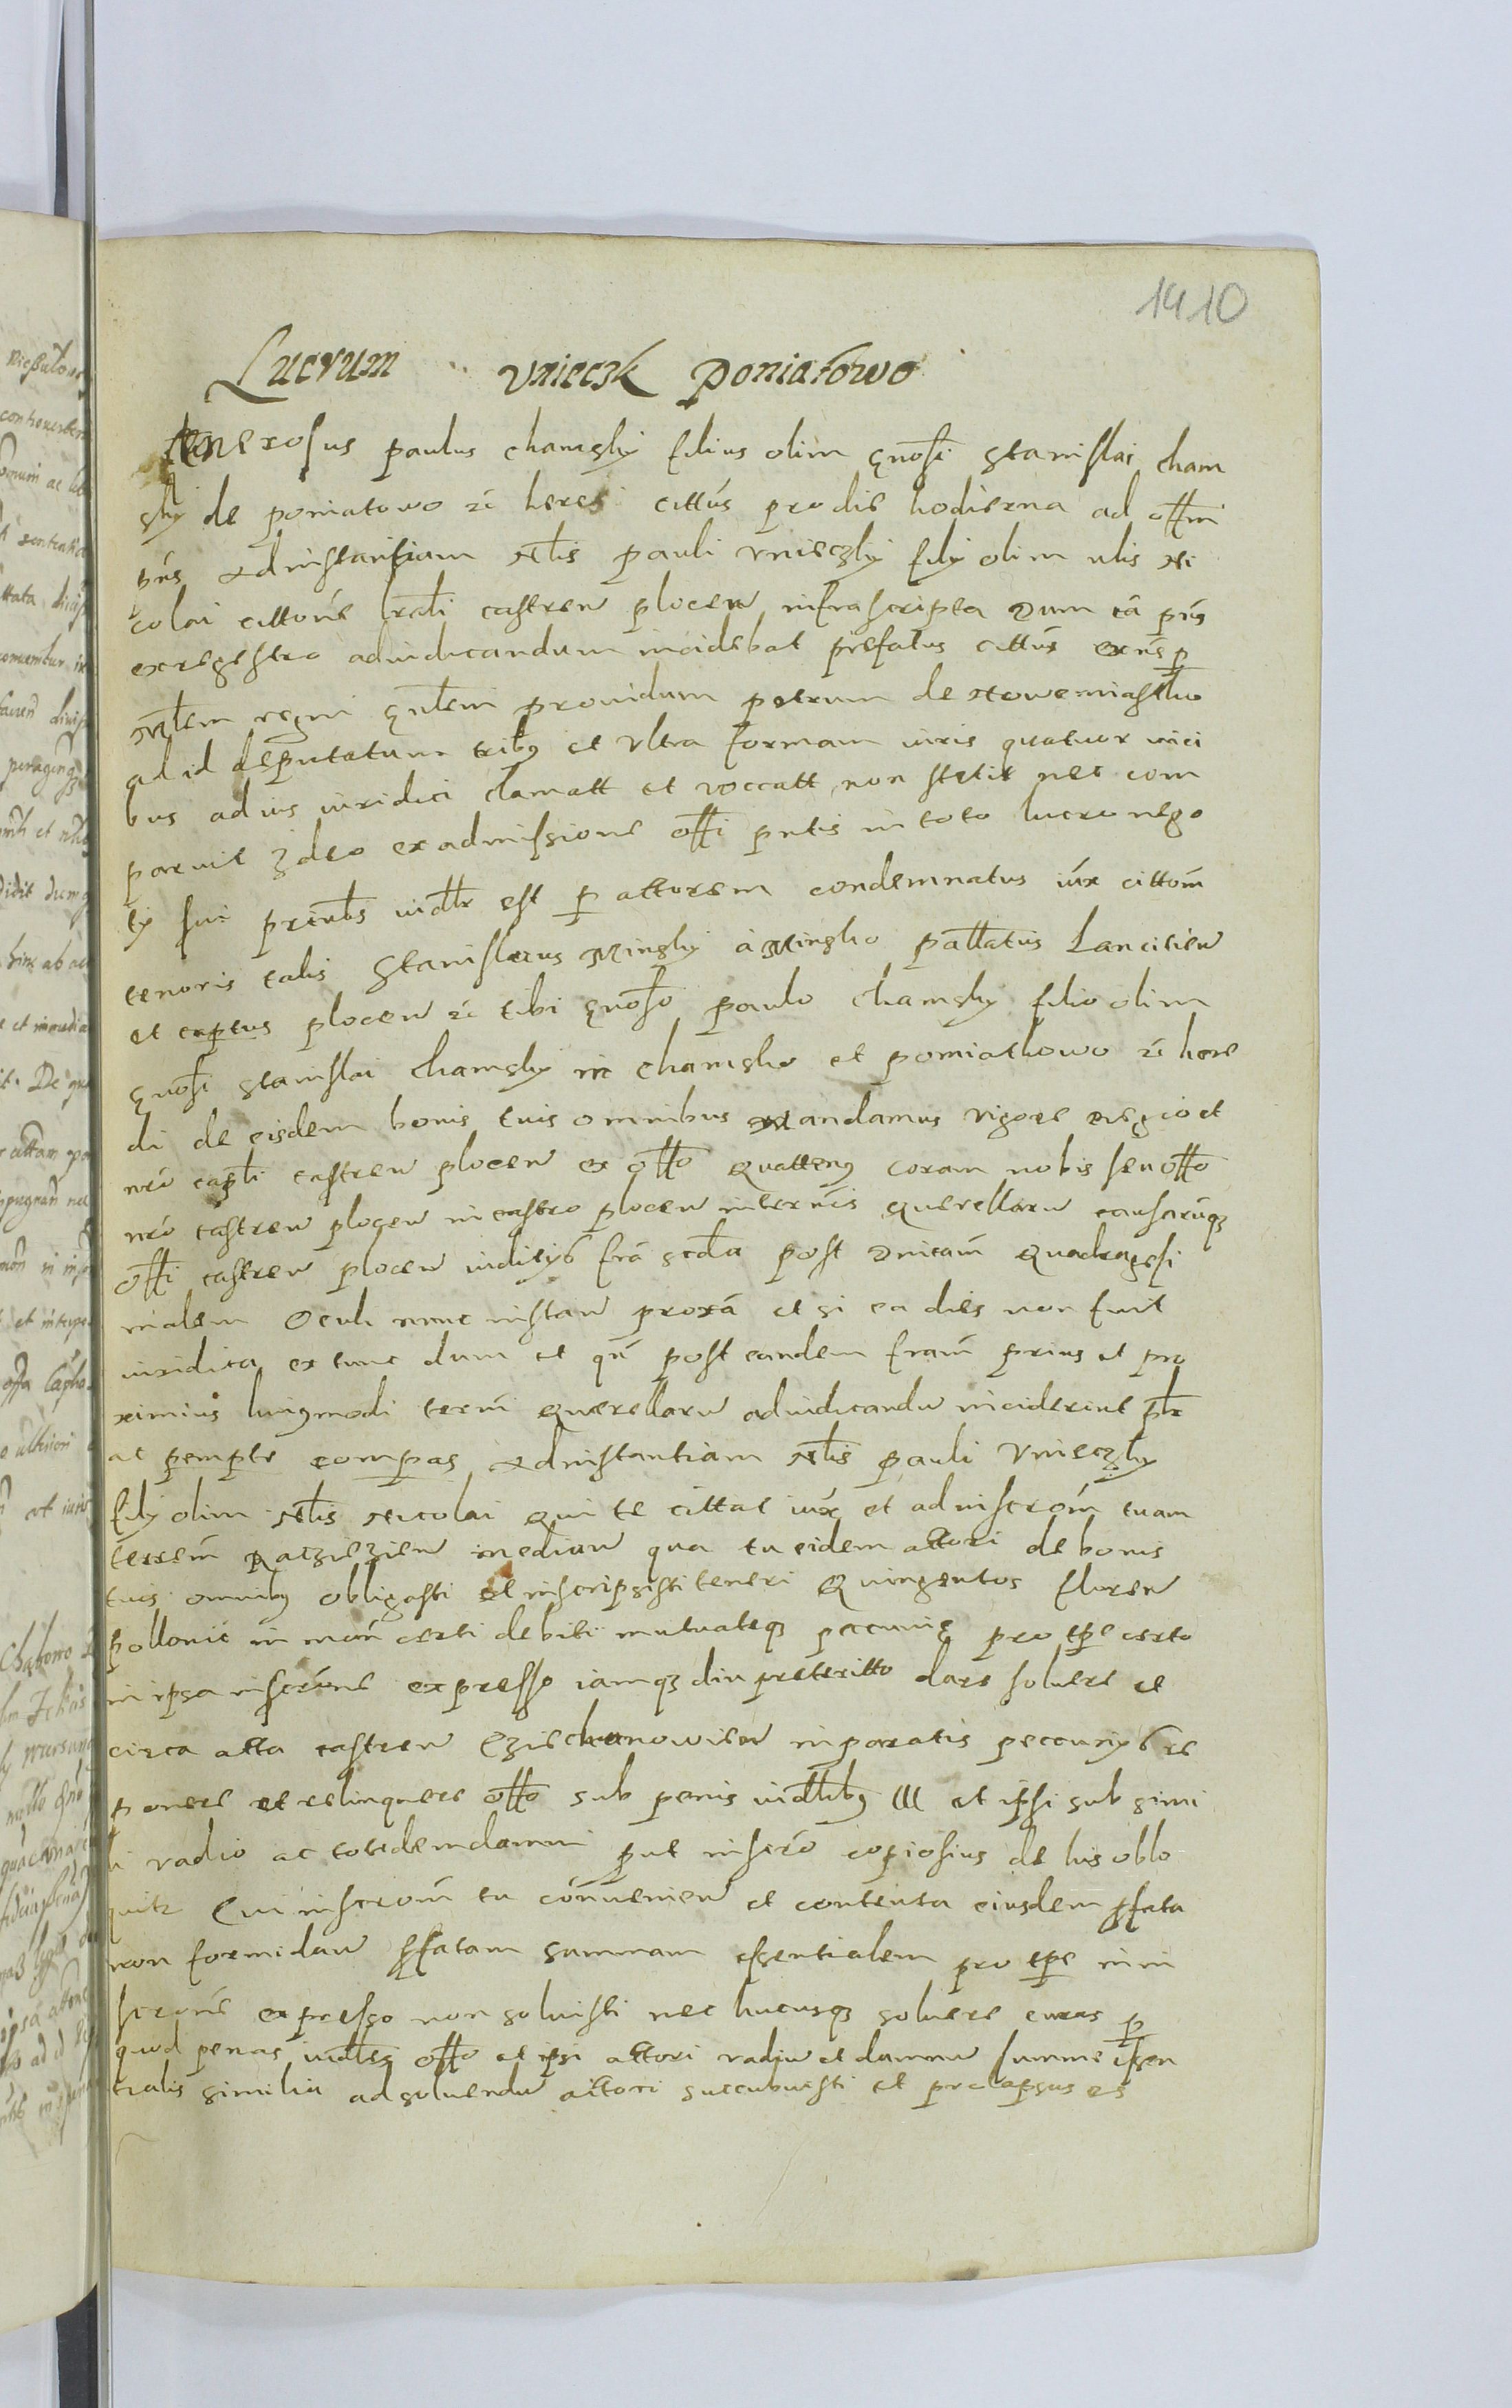 1410
Lucrum Vnieczk Poniatowo
Generosus paulus chamsky filius olim gnosi Stanislai cham
sky de poniatowo zc heres cittus pro die hodierna ad offm
pns Ad instantiam Nlis pauli vnieczky filij olim nlis Ni
colai cittone lrali castren plocen infrascripta Dum ca pns
ex regestro adiudicandum incidebat prefatus cittus ex nc p
mlem regni gnlem prouidum petrum de Nowemiastho
ad id deputatum tribq et vltra formam iuris quatuor vici
bus ad ius iuridici clamatt et voccatt non stetit nec com
paruit Ideo ex admissione offi pntis in toto lucro nego
tij sui principlis vidlt est p attorem condemnatus iux cittom
tenoris talis Stanislaus Minsky a Minsko pallatus Lancicien
et captus plocen zc tibi gnoso paulo chamsky filio olim
gnosi Stanislai chamsky in chamsko et poniathowo zc here
di de eisdem bonis tuis omnibus Mandamus vigore regio et
nro capli castren plocen ex offo Quattenq coram nobis seu offo
nro castren plocen in castro plocen in termis Querellaru causaruq
offi castren plocen iudicijs fra scda post Dnicam Quadragesi
malem Oculi nunc instan proxa et si ea dies non fuit
iuridica ex tunc dum et qn post eandem fram prius et pro
ximius huiqmodi termi Querellaru adiudicandu inciderint plr
ac pempte compas Ad instantiam Nlis pauli Vnieczky
filij olim Nlis Nicolai Qui te cittat iux et ad inscrom tuam
terrem Raczyazien median qua tu eidem attori de bonis
tuis omnibq obligasti et inscripsisti teneri Quingentos floren
pollonic in mon certi debiti mutuateq peccunie pro tpe certo
in ipsa inscrone expresso iamq diu preteritto dare soluere et
circa atta castren Cziechanowien in paratis peccunijs re
ponere et relinquere offo sub penis vidlibq III et ipsi sub simi
li vadio ac totidem damni put inscro copiosius de his oblo
quitr Cui inscrom tu conuenien et contenta eiusdem pfata
non formidan pfatam summam essentialem pro tpe in in
scrone expresso non soluisti nec hucusq soluere curas p
quod penas vidles offo et ipsi attori vadiu et damnu summe essen
tialis similia ad soluendu attori succubuisti et prelapsus es